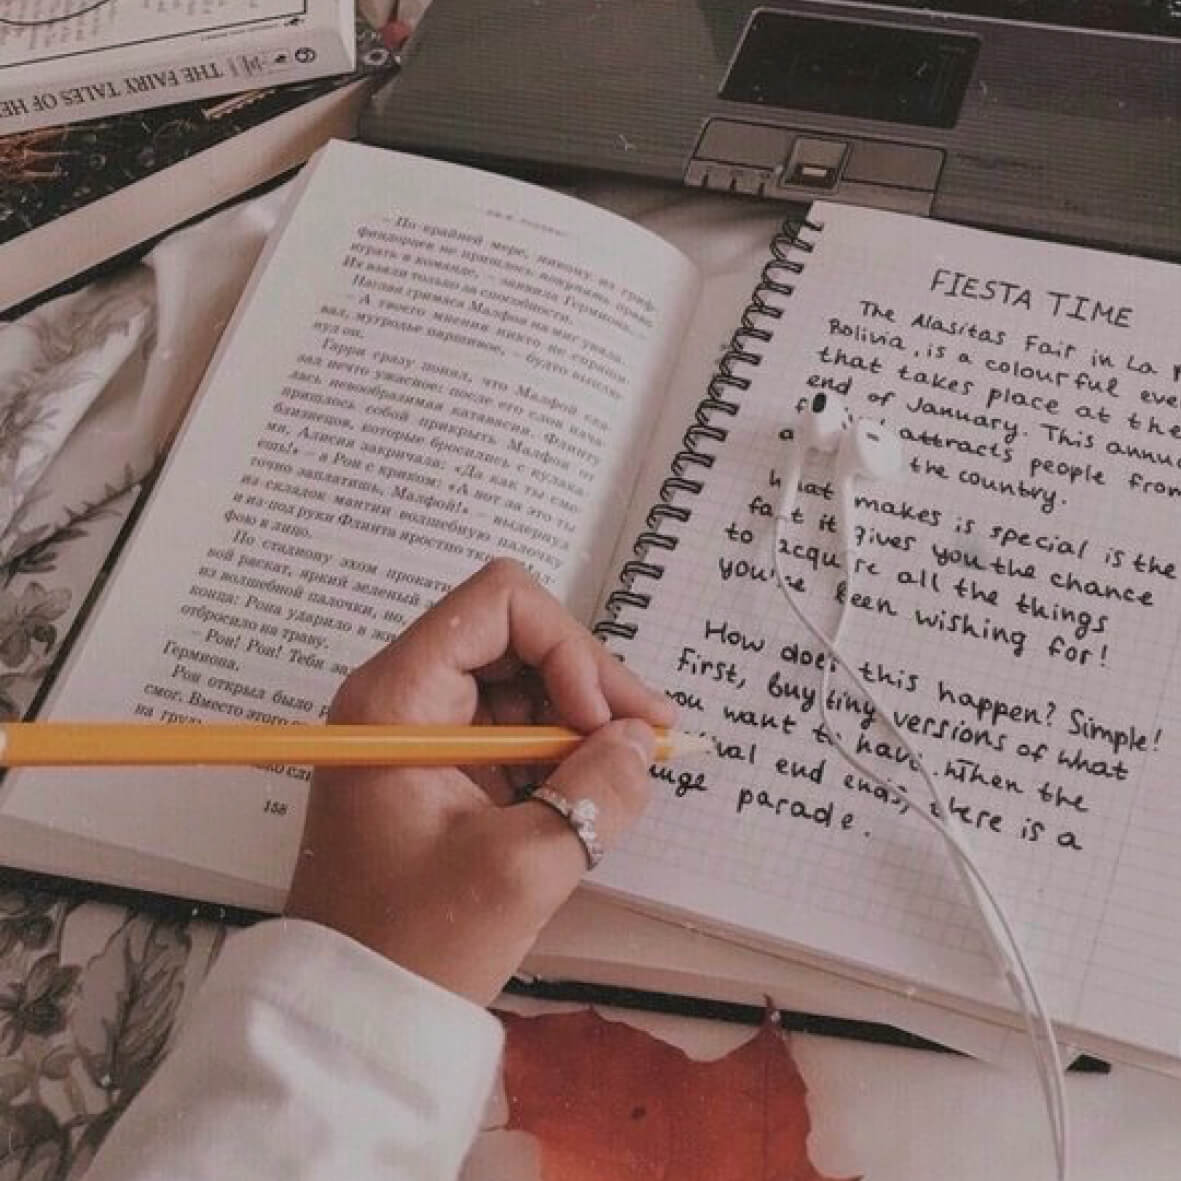 THE FAIRY TALES OF HE
– По крайней мере, никому из гриф-
финдорцев не пришлось покупать право
играть в команде, – заявила Гермиона. –
Их взяли только за способности.
Наглая гримаса Малфоя на миг увяла.
– А твоего мнения никто не спраши-
вал, мугродье паршивое, – будто выплю-
нул он.
Гарри сразу понял, что Малфой ска-
зал нечто ужасное: после его слов нача-
лась невообразимая катавасия. Флинту
пришлось собой прикрыть Малфоя от
близнецов, которые бросились с кулака-
ми, Алисия закричала: «Да как ты сме-
ешь!» – а Рон с криком: «А вот за это ты
точно заплатишь, Малфой!» – выдернул
из складок мантии волшебную палочку
и из-под руки Флинта яростно
фою в лицо.
По стадиону эхом прокати
вой раскат, яркий зеленый
из волшебной палочки, но,
конца: Рона ударило в жи
отбросило на траву.
– Рон! Рон! Теби
Гермиона.
Рон открыл было
смог. Вместо этого
на
158
FIESTA TIME
The Alasitas Fair in La
Bolivia, is a colourful
that takes place at the
end of January. This
attracts people from
the country.
makes is special is the
it gives you the chance
to all the things
been wishing for!
How does this happen? Simple!
First, buy tiny versions of what
you want to have. When the
end ends, there is a
huge parade.